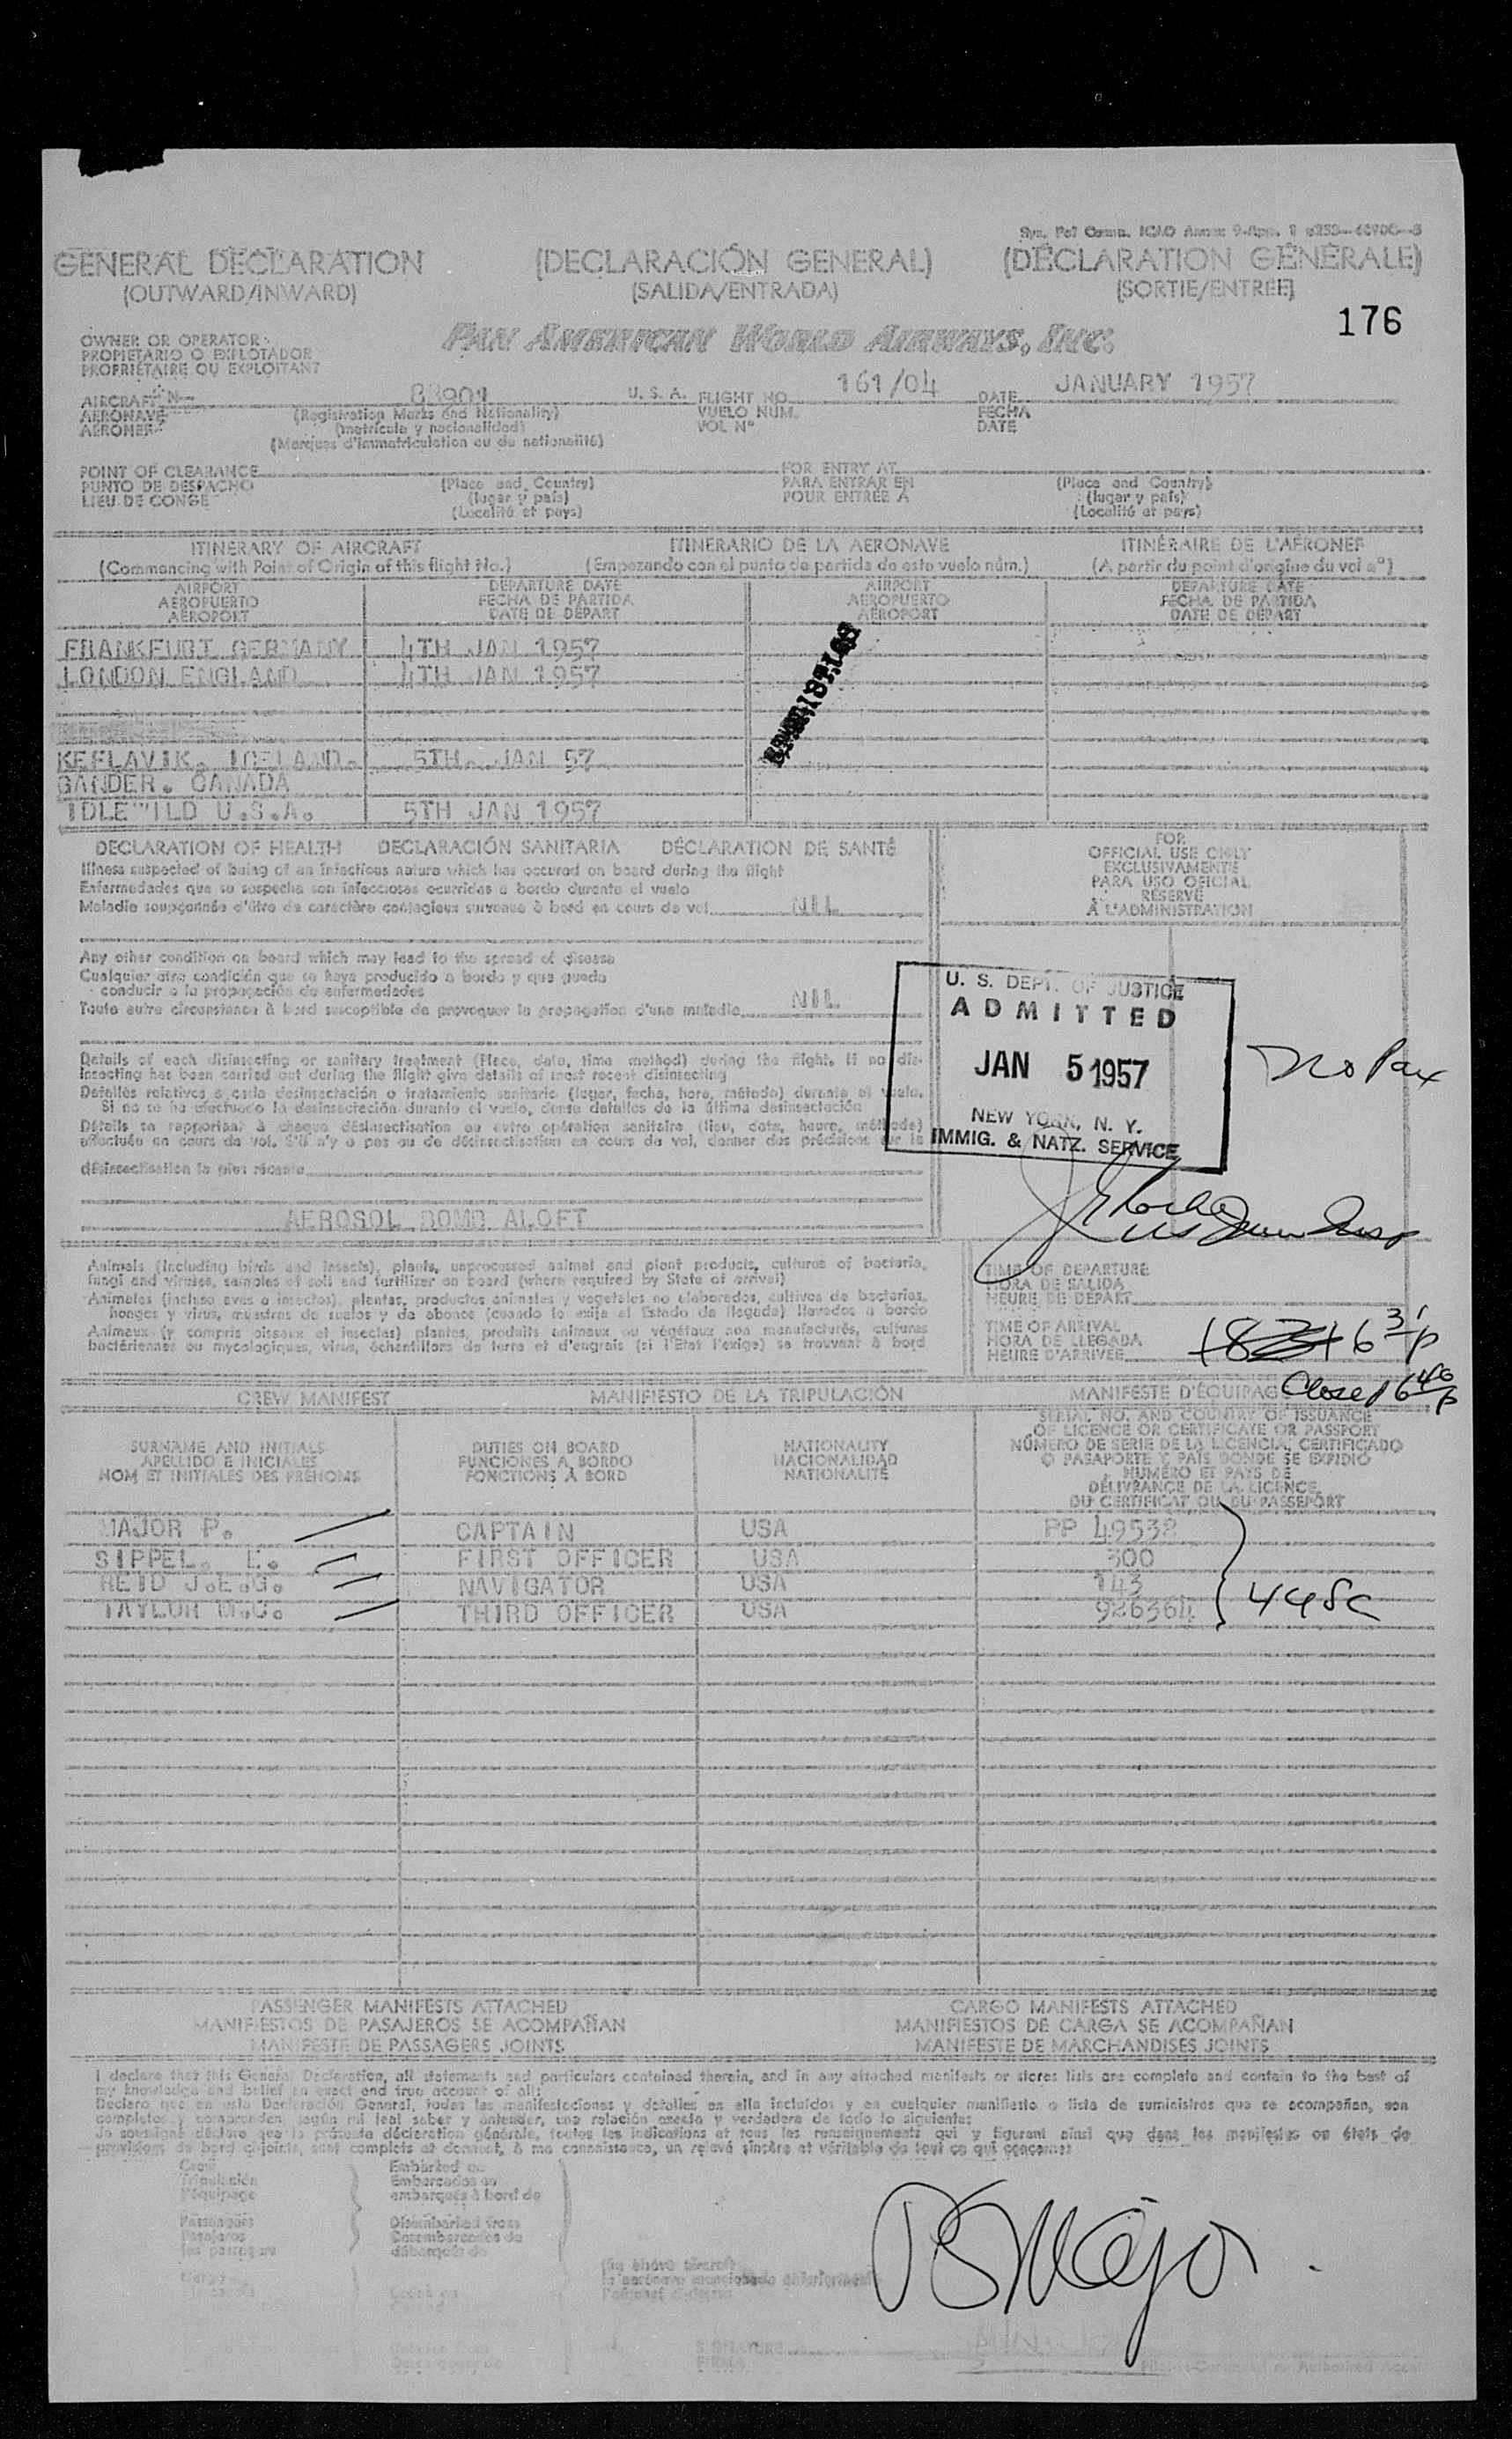 GENERAL DECLARATION (DECLARACIÓN GENERAL) (DÉCLARATION GÉNÉRALE)
(OUTWARD/INWARD) (SALIDA/ENTRADA) (SORTIE/ENTRÉE)
176
OWNER OR OPERATOR
PROPIETARIO O EXPLOTADOR
PROPRIÉTAIRE OU EXPLOITANT
PAN AMERICAN WORLD AIRWAYS, INC.
AIRCRAFT N
AERONAVE
AÉRONEF
U. S. A.
(Registration Marks and Nationality)
(matrícula y nacionalidad)
(Marques d'immatriculation ou de nationalité)
FLIGHT NO. 161/04
VUELO NÚM.
VOL Nº
DATE JANUARY 1957
FECHA
DATE
POINT OF CLEARANCE
PUNTO DE DESPACHO
LIEU DE CONGÉ
(Place and Country)
(lugar y país)
(Localité et pays)
FOR ENTRY AT
PARA ENTRAR EN
POUR ENTRÉE À
(Place and Country)
(lugar y país)
(Localité et pays)
ITINERARY OF AIRCRAFT ITINERARIO DE LA AERONAVE ITINÉRAIRE DE L'AÉRONEF
(Commencing with Point of Origin of this flight No.) (Empezando con el punto de partida de este vuelo núm.) (A partir du point d'origine du vol nº)
AIRPORT DEPARTURE DATE AIRPORT DEPARTURE DATE
AEROPUERTO FECHA DE PARTIDA AEROPUERTO FECHA DE PARTIDA
AÉROPORT DATE DE DÉPART AÉROPORT DATE DE DÉPART
FRANKFURT GERMANY 4TH JAN 1957
LONDON ENGLAND 4TH JAN 1957
KEFLAVIK. ICELAND. 5TH. JAN 57
GANDER. CANADA
IDLEWILD U.S.A. 5TH JAN 1957
DECLARATION OF HEALTH DECLARACIÓN SANITARIA DÉCLARATION DE SANTÉ
Illness suspected of being of an infectious nature which has occured on board during the flight
Enfermedades que se sospecha son infecciosas ocurridas a bordo durante el vuelo
Maladie soupçonnée d'être de caractère contagieux survenue à bord en cours de vol NIL
FOR
OFFICIAL USE ONLY
EXCLUSIVAMENTE
PARA USO OFICIAL
RÉSERVÉ
À L'ADMINISTRATION
Any other condition on board which may lead to the spread of disease
Cualquier otra condición que se haya producido a bordo y que pueda
conducir a la propagación de enfermedades
Toute autre circonstance à bord susceptible de provoquer la propagation d'une maladie NIL
U. S. DEPT. OF JUSTICE
ADMITTED
JAN 5 1957
NEW YORK, N. Y.
IMMIG. & NATZ. SERVICE
No Pax
Details of each disinsecting or sanitary treatment (Place, date, time method) during the flight. If no dis-
insecting has been carried out during the flight give details of most recent disinsecting
Detalles relativos a cada desinsectación o tratamiento sanitario (lugar, fecha, hora, método) durante el vuelo.
Si no se ha efectuado la desinsectación durante el vuelo, dense detalles de la última desinsectación
Détails se rapportant à chaque désinsectisation ou autre opération sanitaire (lieu, date, heure, méthode)
effectuée en cours de vol. S'il n'y a pas eu de désinsectisation en cours de vol, donner des précisions sur la
désinsectisation la plus récente
AEROSOL BOMB ALOFT
Animals (including birds and insects), plants, unprocessed animal and plant products, cultures of bacteria,
fungi and viruses, samples of soil and fertilizer on board (where required by State of arrival)
Animales (incluso aves o insectos), plantas, productos animales y vegetales no elaborados, cultivos de bacterias,
hongos y virus, muestras de suelos y de abonos (cuando lo exija el Estado de llegada) llevados a bordo
Animaux (y compris oiseaux et insectes) plantes, produits animaux ou végétaux non manufacturés, cultures
bactériennes ou mycologiques, virus, échantillons de terre et d'engrais (si l'État l'exige) se trouvant à bord
TIME OF DEPARTURE
HORA DE SALIDA
HEURE DE DÉPART
TIME OF ARRIVAL
HORA DE LLEGADA
HEURE D'ARRIVÉE 6 31 p
Closed 6 40 p
CREW MANIFEST MANIFIESTO DE LA TRIPULACIÓN MANIFESTE D'ÉQUIPAGE
SURNAME AND INITIALS
APELLIDO E INICIALES
NOM ET INITIALES DES PRÉNOMS
DUTIES ON BOARD
FUNCIONES A BORDO
FONCTIONS À BORD
NATIONALITY
NACIONALIDAD
NATIONALITÉ
SERIAL NO. AND COUNTRY OF ISSUANCE
OF LICENCE OR CERTIFICATE OR PASSPORT
NÚMERO DE SERIE DE LA LICENCIA, CERTIFICADO
O PASAPORTE Y PAÍS DONDE SE EXPIDIÓ
NUMÉRO ET PAYS DE
DÉLIVRANCE DE LA LICENCE
DU CERTIFICAT OU DU PASSEPORT
MAJOR P. CAPTAIN USA PP 49538
SIPPEL. E. FIRST OFFICER USA 300
REID J.E.G. NAVIGATOR USA 143
TAYLOR THIRD OFFICER USA 926364
PASSENGER MANIFESTS ATTACHED CARGO MANIFESTS ATTACHED
MANIFIESTOS DE PASAJEROS SE ACOMPAÑAN MANIFIESTOS DE CARGA SE ACOMPAÑAN
MANIFESTE DE PASSAGERS JOINTS MANIFESTE DE MARCHANDISES JOINTS
I declare that this General Declaration, all statements and particulars contained therein, and in any attached manifests or stores lists are complete and contain to the best of
my knowledge and belief an exact and true account of all:
Declaro que en esta Declaración General, todas las manifestaciones y detalles en ella incluidos y en cualquier manifiesto o lista de suministros que se acompañan, son
completos y comprenden, según mi leal saber y entender, una relación exacta y verdadera de todo lo siguiente:
Je soussigné déclare que la présente déclaration générale, toutes les indications et tous les renseignements qui y figurent ainsi que dans les manifestes ou états de
provisions de bord ci-joints, sont complets et donnent, à ma connaissance, un relevé sincère et véritable de tout ce qui concerne:
Crew
Tripulación
l'équipage
Embarked on
Embarcados en
embarqués à bord de
Passengers
Pasajeros
les passagers
Disembarked from
Desembarcados de
débarqués de
Cargo
PS Major